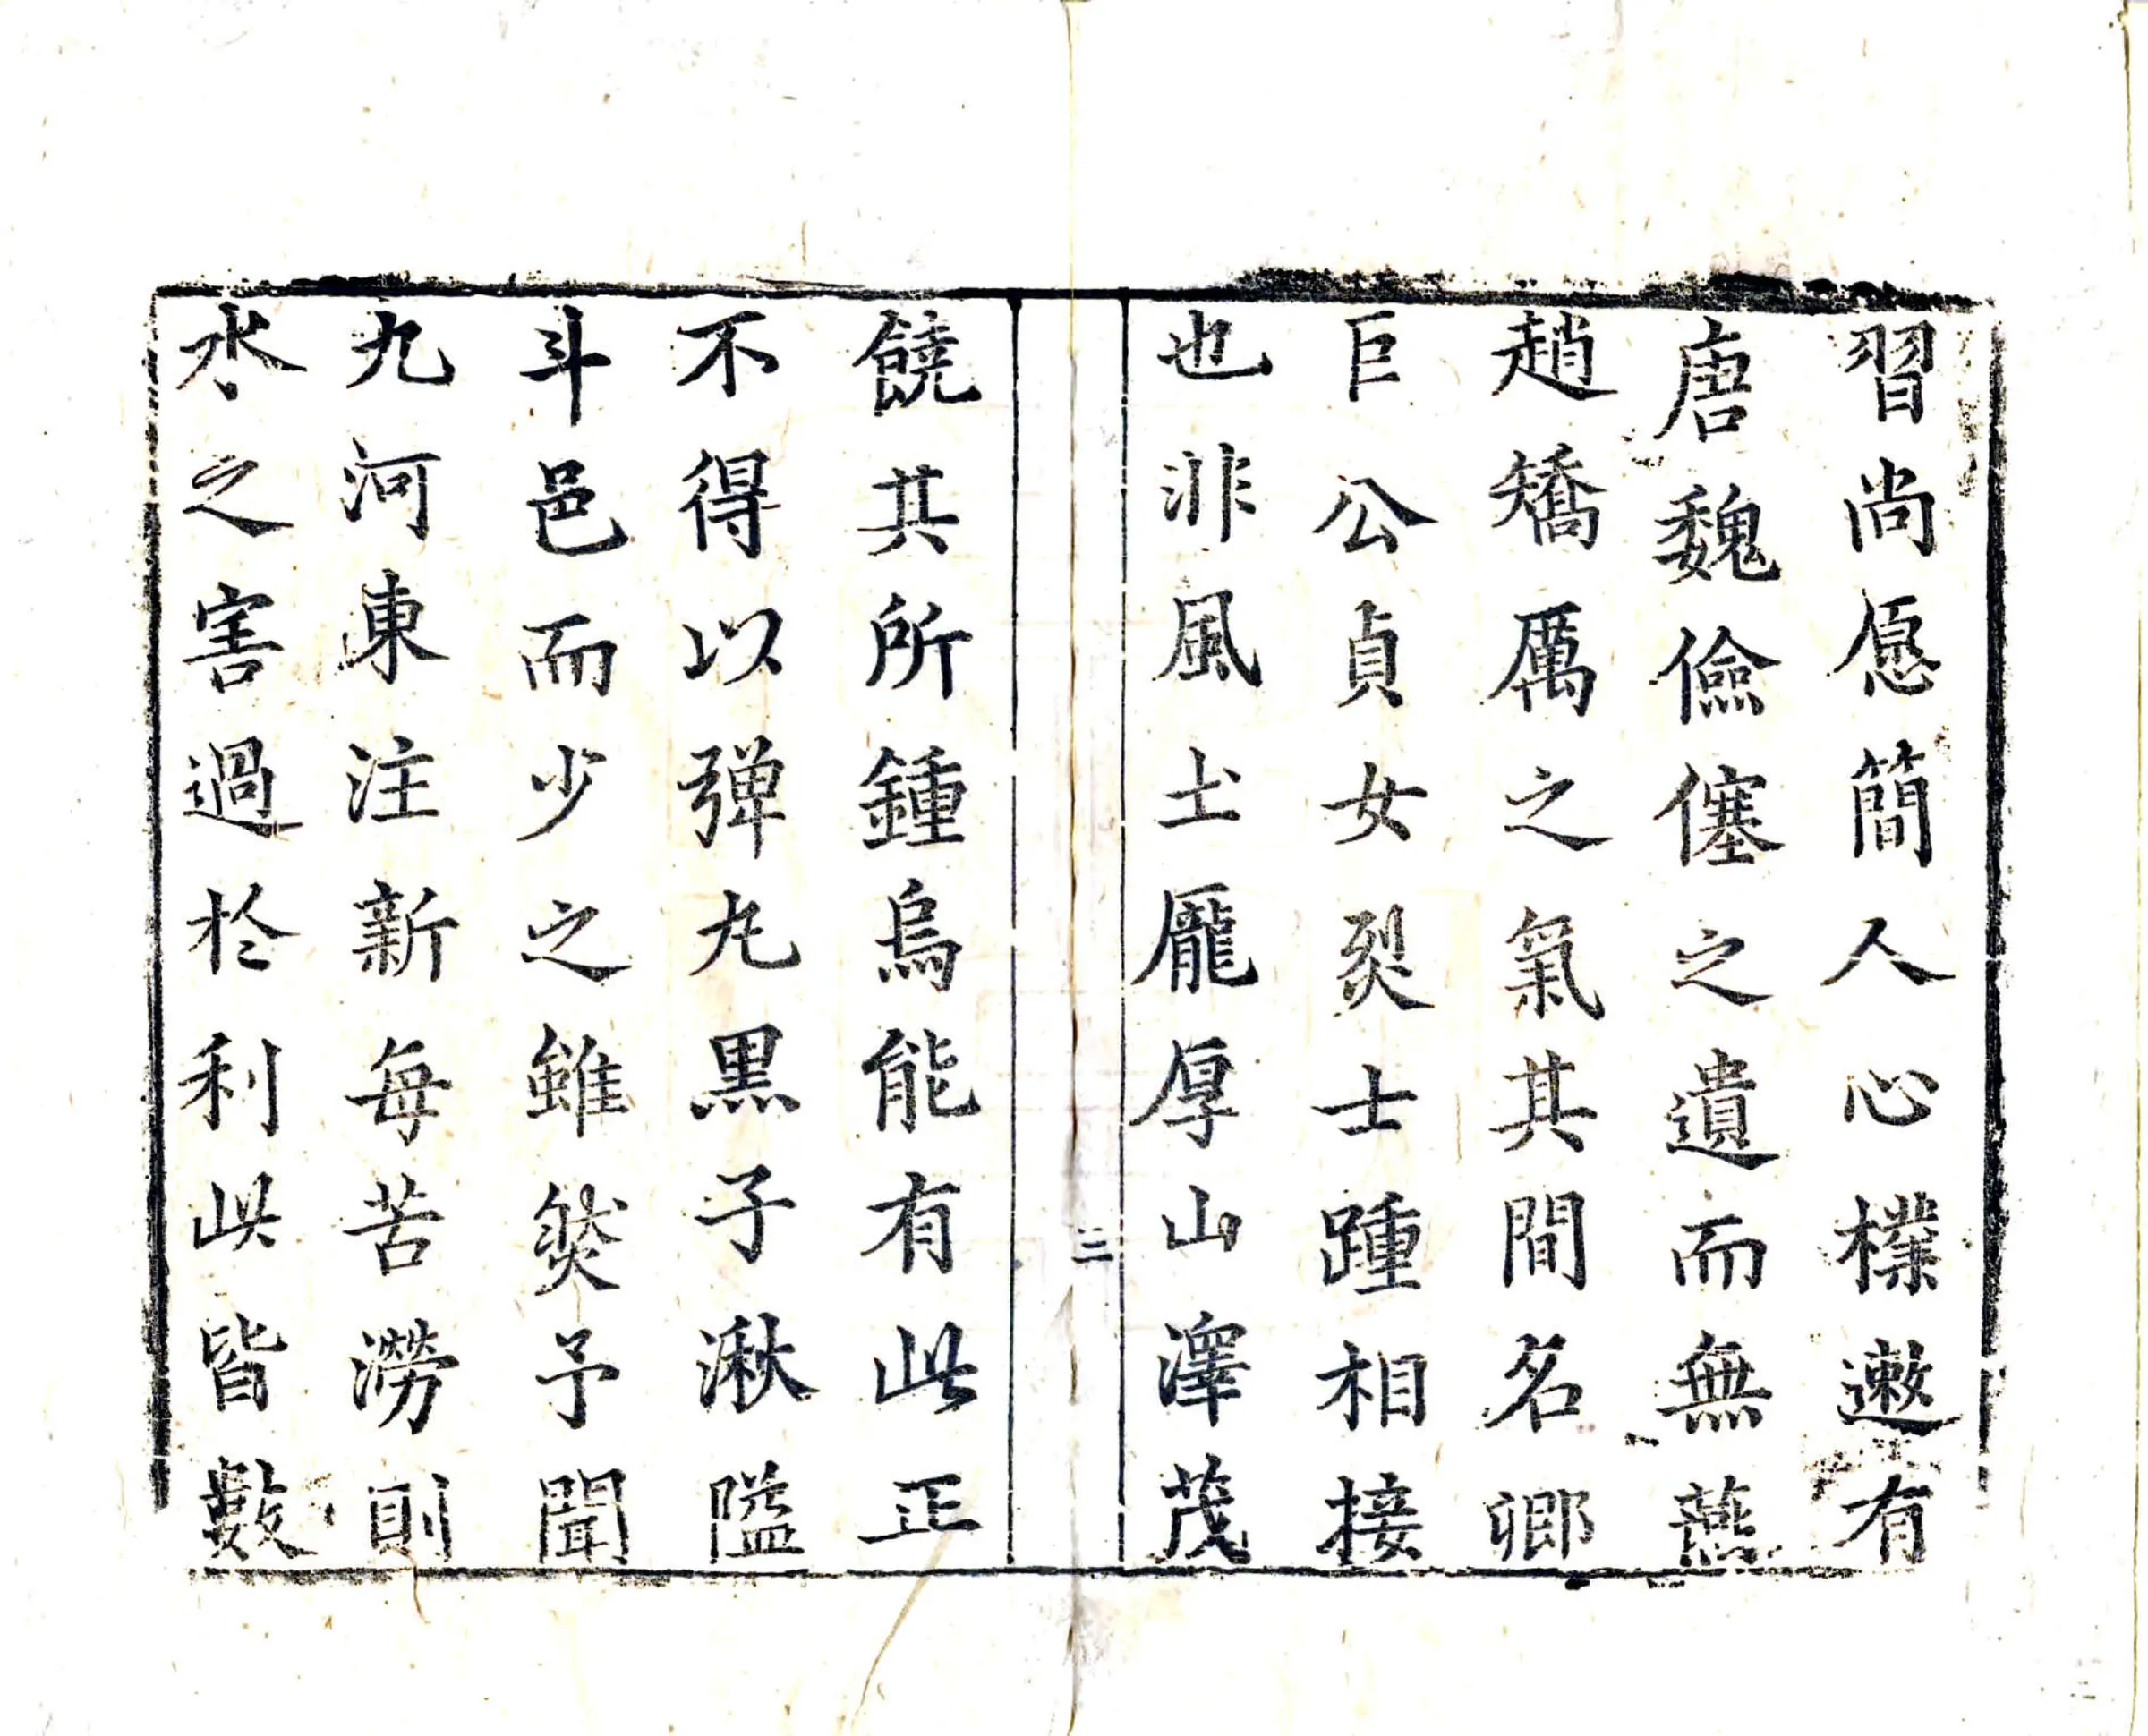 習尚愿簡人心樸遬有
唐魏儉僿之遺而無燕
趙矯厲之氣其間名卿
巨公貞女烈士踵相接
也非風土龎厚山澤茂
三
饒其所鍾烏能有此正
不得以弹丸黒子湫隘
斗邑而少之雖然予聞
九河東注新每苦澇則
水之害過於利此皆數